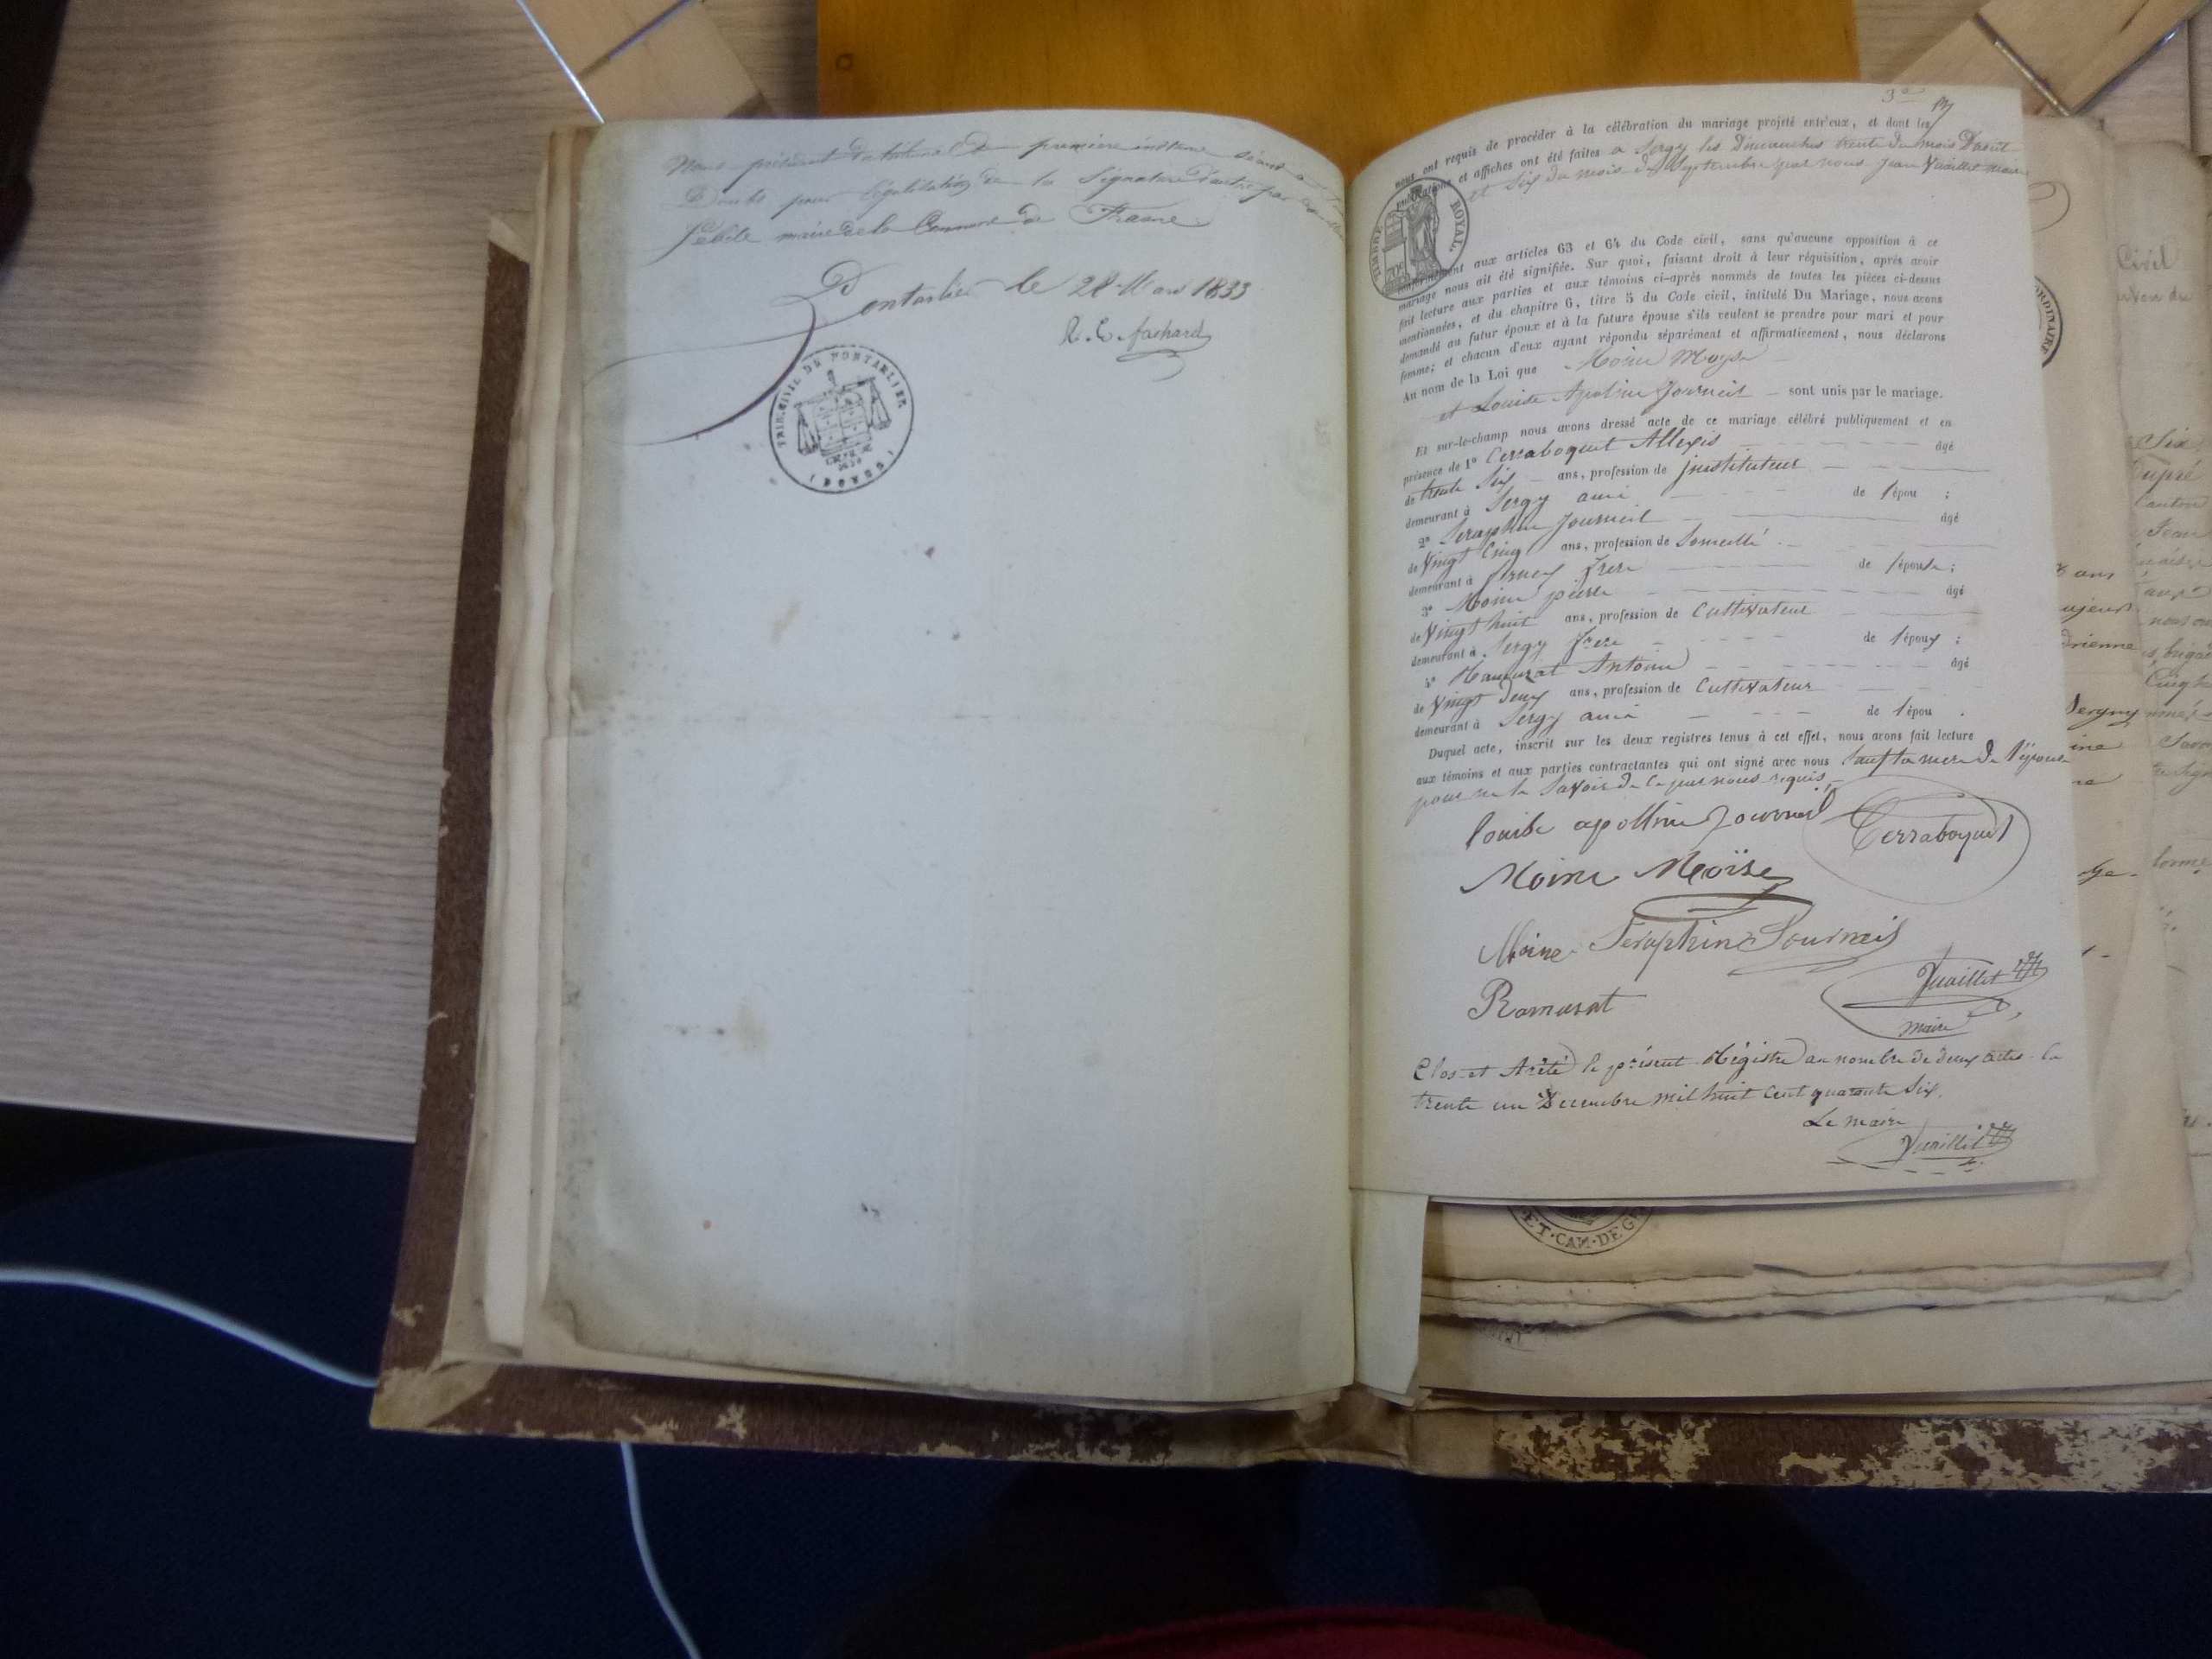 Nous président du tribunal de première instance séant à
Doubs pour légalisation de la signature d'autre par
maire de la Commune de Frasne
Pontarlier le 28 Mars 1833
TRIB. CIVIL DE PONTARLIER
(DOUBS)
3e
nous ont requis de procéder à la célébration du mariage projeté entr'eux, et dont les
publications et affiches ont été faites a Sergy les Dimanches trente du mois Daout
et Six du mois de Septembre par nous Jean Vuaillet maire
TIMBRE ROYAL
70c
conformément aux articles 63 et 64 du Code civil, sans qu'aucune opposition à ce
mariage nous ait été signifiée. Sur quoi, faisant droit à leur réquisition, après avoir
fait lecture aux parties et aux témoins ci-après nommés de toutes les pièces ci-dessus
mentionnées, et du chapitre 6, titre 5 du Code civil, intitulé Du Mariage, nous avons
demandé au futur époux et à la future épouse s'ils veulent se prendre pour mari et pour
femme; et chacun d'eux ayant répondu séparément et affirmativement, nous déclarons
An nom de la Loi que Moine Moyse
et Louise Apoline Journeil sont unis par le mariage.
Et sur-le-champ nous avons dressé acte de ce mariage célébré publiquement et en
présence de 1° Cerraboquet Allexis âgé
de trente Six ans, profession de instituteur
demeurant à Sergy ami de l'épou ;
2° Seraphin Journeil âgé
de Vingt Cinq ans, profession de
demeurant à frere de l'épouse;
3° Moine pierre âgé
de Vingt huit ans, profession de Cultivateur
demeurant à Sergy frere de l'époux ;
4° Antoine âgé
de Vingt Deux ans, profession de Cultivateur
demeurant à Sergy ami de l'épou .
Duquel acte, inscrit sur les deux registres tenus à cet effet, nous avons fait lecture
aux témoins et aux parties contractantes qui ont signé avec nous Sauf la mere de l'épouse
pour ne le Savoir de ce par nous requis
louise apolline Journeil Cerraboquet
Moine Moïse
Moine Seraphin Journeil
Ramurat Vuaillet
maire
Clos et Arêté le présent Régistre au nombre de deux actes le
trente un Decembre mil huit Cent quarante Six.
Le maire
Vuaillet
ORDINAIRE
Civil
Six
Canton
Jean
x ans
Sergny
ET·CAN·DE·GE